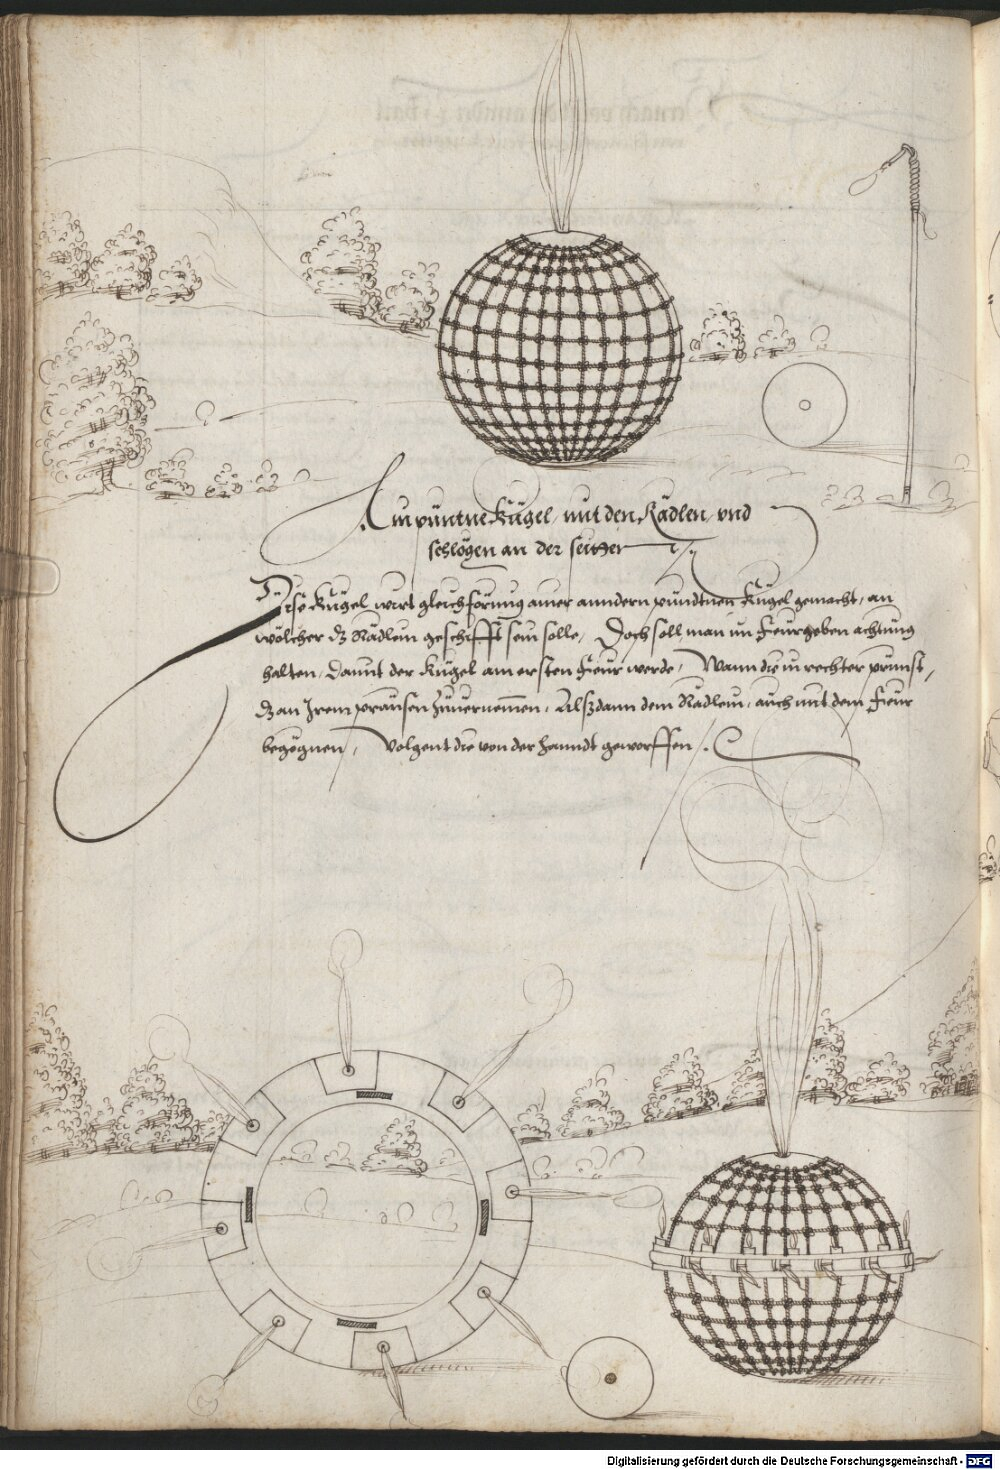 Ain püntne Kugel, mit den Rädlen, vnd
schlögen an der seitten
Dise Kugel wirt gleichförmig ainer anndern pundtnen Kugel gemacht, an
wölcher dz Rädlein geschifft sein solle, Doch soll man im Feurgeben achtung
halten, damit der Kugel am ersten Feur werde, Wann die in rechter prunst,
dz an Irem prausen Zuuernemen, Alßdann dem Rädlein, auch mit dem Feur
begegnen, Volgent die von der hanndt geworffen.
Digitalisierung gefördert durch die Deutsche Forschungsgemeinschaft - DFG